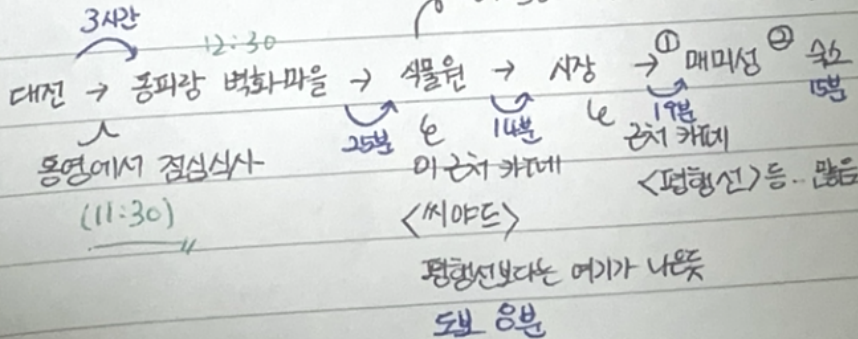 3시간
12:30
대전 → 동피랑 벽화마을 → 식물원 → 시장 → ① 매미성 ② 숙소
25분 14분 19분 15분
통영에서 점심식사
이 근처 카페
근처 카페
(11:30)
<씨야드>
<평행선> 등.. 많음
평행선보다는 여기가 나은듯
도보 8분